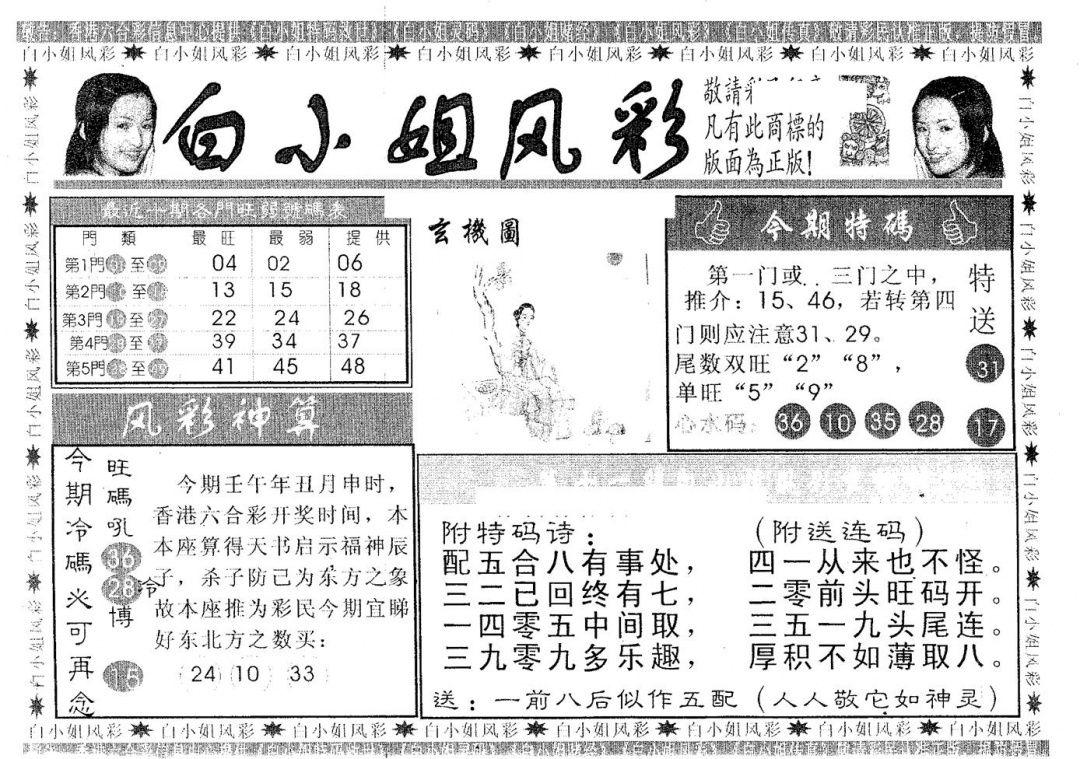 白小姐风彩 白小姐风彩 白小姐风彩 白小姐风彩 白小姐风彩 白小姐风彩 白小姐风彩 白小姐风彩
白小姐风彩
敬請彩
凡有此商標的
版面為正版!
最近一期各門旺弱號碼表
門類 最旺 最弱 提供
第1門 至 09 04 02 06
第2門 至 18 13 15 18
第3門 19 至 27 22 24 26
第4門 至 39 34 37
第5門 至 49 41 45 48
玄機圖
今期特碼
第一门或 三门之中,
推介:15、46,若转第四
门则应注意31、29。
尾数双旺“2”“8”,
单旺“5”“9”
心水码: 36 10 35 28
特送
31
17
风彩神算
今期冷碼火可再念
旺碼吼
36
28
冷
博
15
今期壬午年丑月申时,
香港六合彩开奖时间,本
本座算得天书启示福神辰
子,杀子防己为东方之象
故本座推为彩民今期宜睇
好东北方之数买:
24 10 33
附特码诗:
配五合八有事处,
三二已回终有七,
一四零五中间取,
三九零九多乐趣,
(附送连码)
四一从来也不怪。
二零前头旺码开。
三五一九头尾连。
厚积不如薄取八。
送:一前八后似作五配(人人敬它如神灵)
白小姐风彩 白小姐风彩 白小姐风彩 白小姐风彩 白小姐风彩 白小姐风彩 白小姐风彩 白小姐风彩